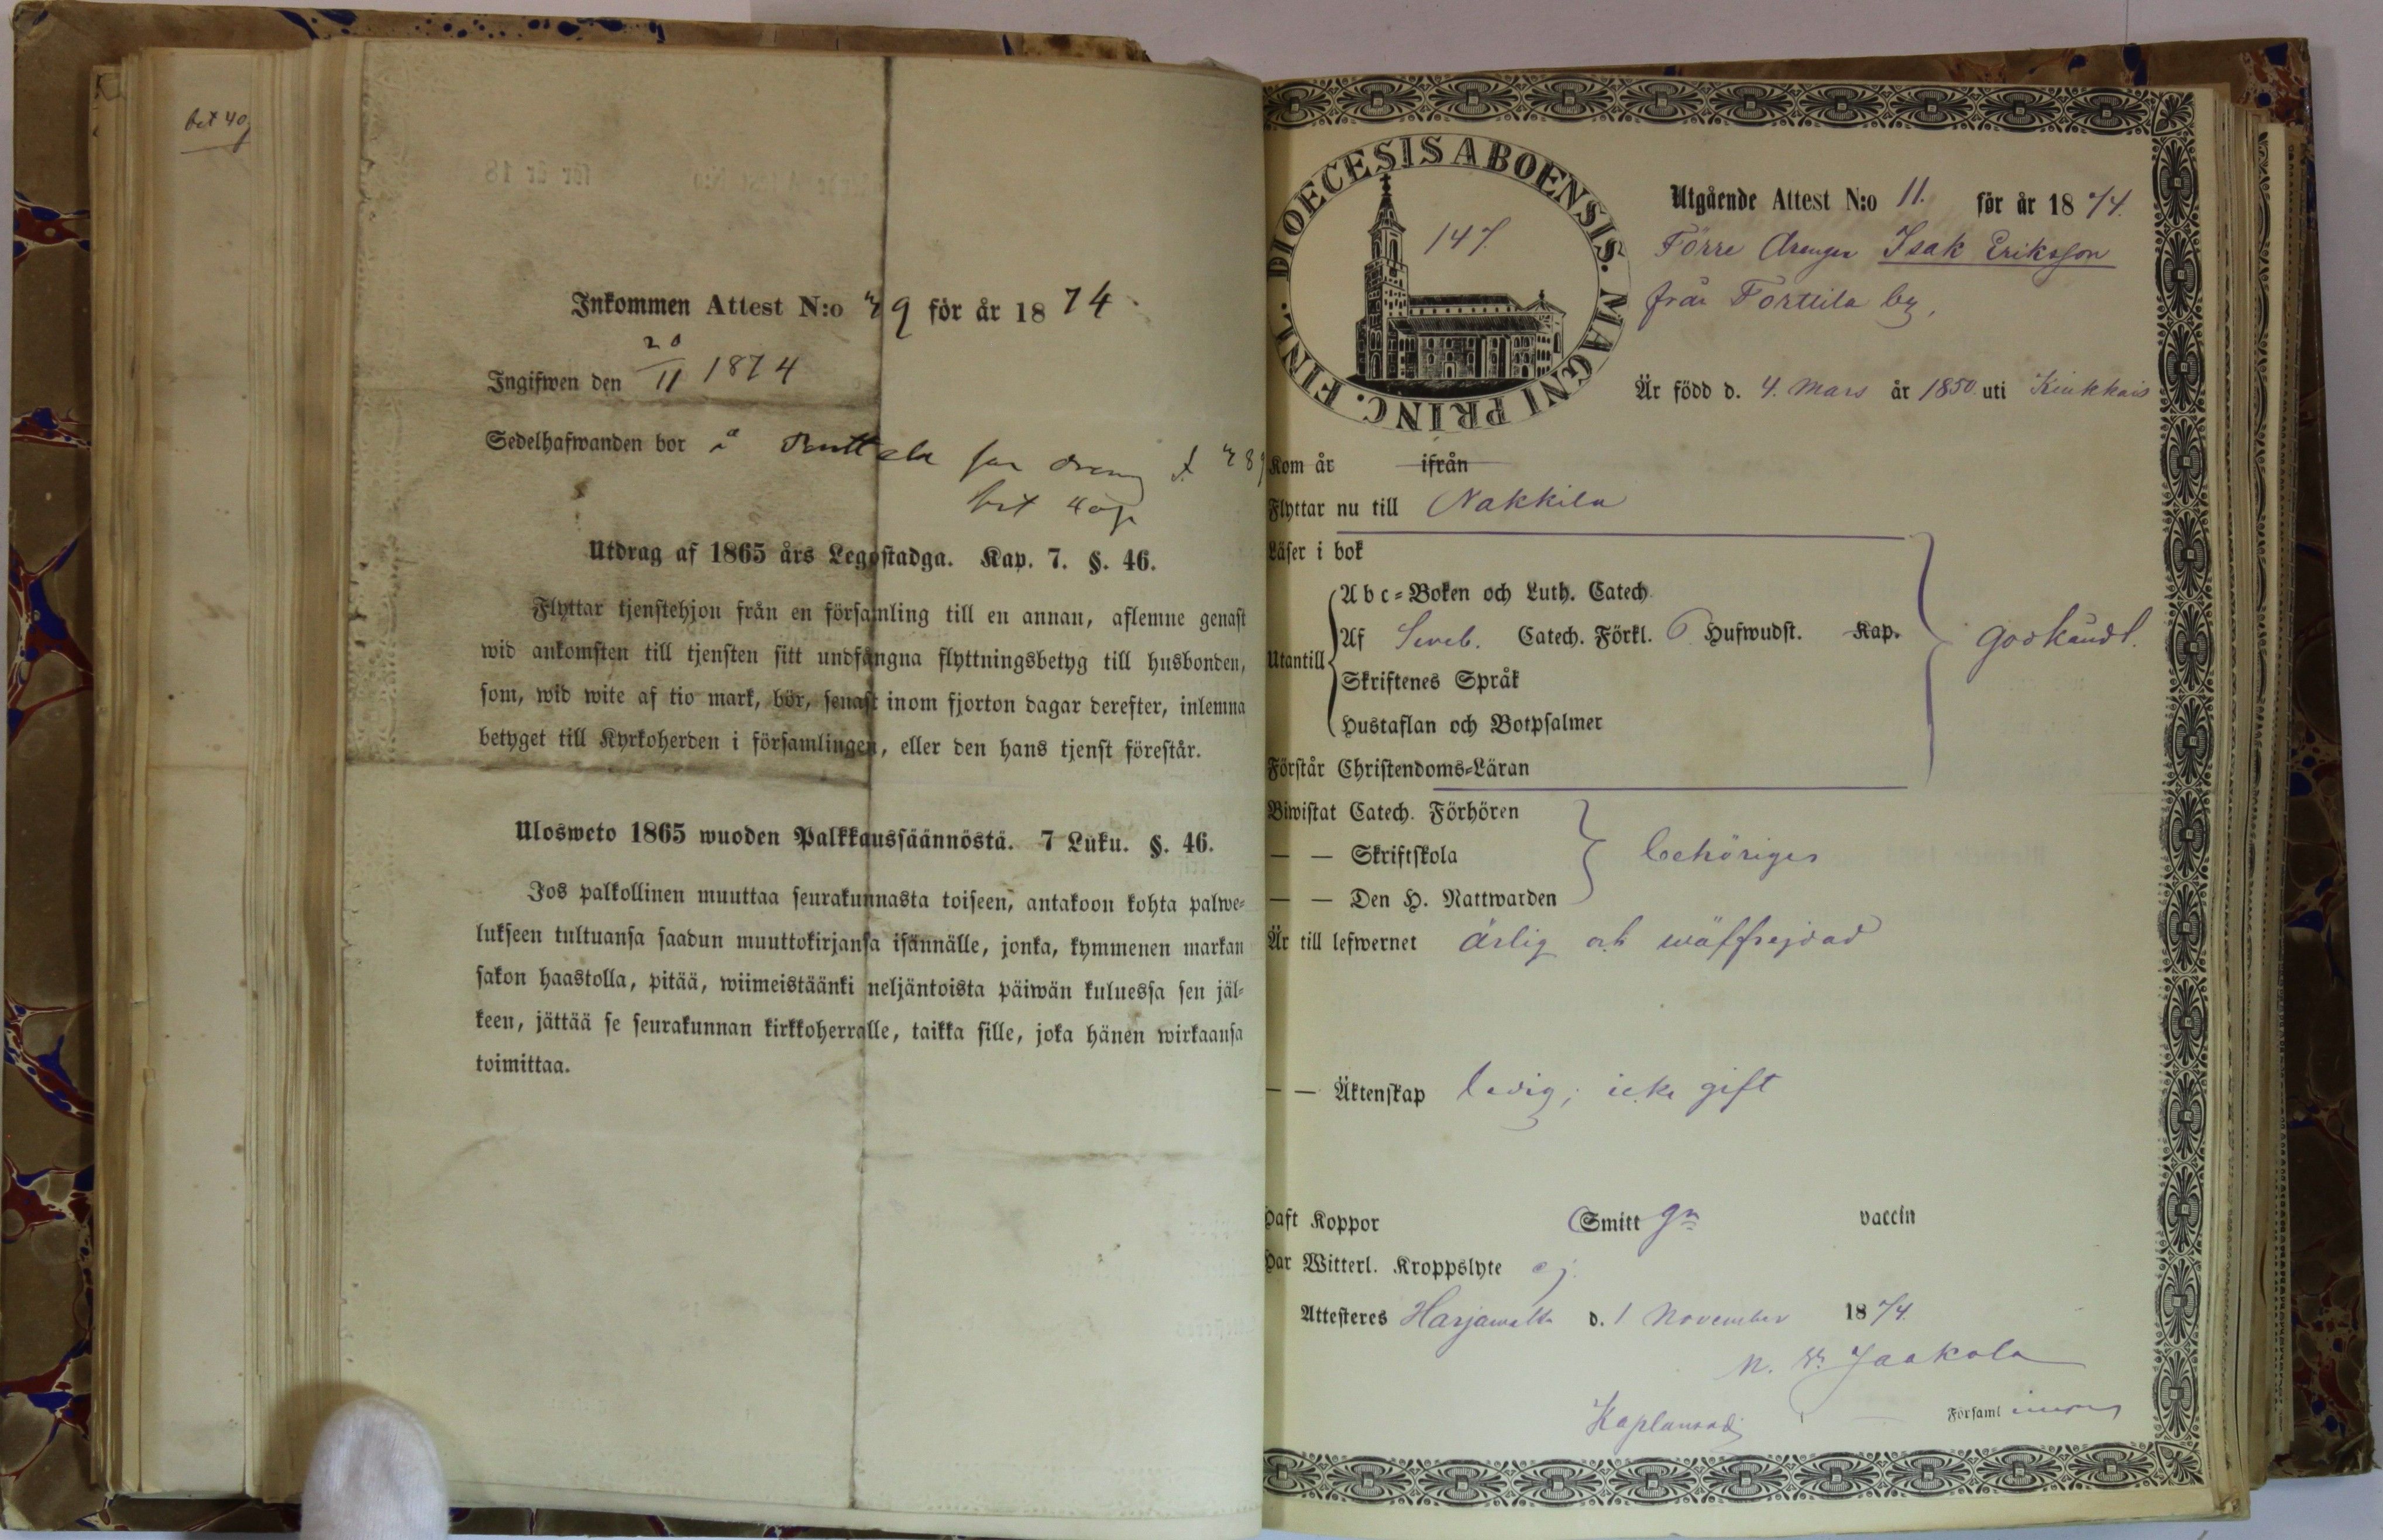 bet 40
Inkommen Attest N:o 49 för år 1874
Ingifwen den 20/11 1874
Sedelhafwanden bor i Ruttila
bet 40
Utdrag af 1865 års Legostadga. Kap. 7. §. 46.
Flyttar tjenstehjon från en församling till en annan, aflemne genast
wid ankomsten till tjensten sitt undfångna flyttningsbetyg till husbonden,
som, wid wite af tio mark, bör, senast inom fjorton dagar derefter, inlemna
betyget till Kyrkoherden i församlingen, eller den hans tjenst förestår.
Ulosweto 1865 wuoden Palkkaussäännöstä. 7 Luku. §. 46.
Jos palkollinen muuttaa seurakunnasta toiseen, antakoon kohta palwe-
lukseen tultuansa saadun muuttokirjansa isännälle, jonka, kymmenen markan
sakon haastolla, pitää, wiimeistäänki neljäntoista päiwän kuluessa sen jäl-
keen, jättää se seurakunnan kirkkoherralle, taikka sille, joka hänen wirkaansa
toimittaa.
DIOECESIS ABOENSIS. MAGNI PRINC. FINL.
147.
Utgående Attest N:o 11. för år 1874.
Förre drengen Isak Eriksson
från Torttila by,
Är född d. 4. Mars år 1850. uti Kiukkais
Kom år ifrån
Flyttar nu till Nakkila
Läser i bok
Abc-Boken och Luth. Catech.
Utantill Af Sveb. Catech. Förkl. 6 Hufwudst. Kap. godkändt.
Skriftenes Språk
Hustaflan och Botpsalmer
Förstår Christendoms-Läran
Biwistat Catech. Förhören
— — Skriftskola behörigen
— — Den H. Nattwarden
Är till lefwernet ärlig och wälfrejdad
— — Äktenskap ledig; icke gift
Haft Koppor Smitt gn vaccin
Har Witterl. Kroppslyte ej.
Attesteres Harjawalta d. 1 November 1874.
Jaakola
Kaplansadj. Församl